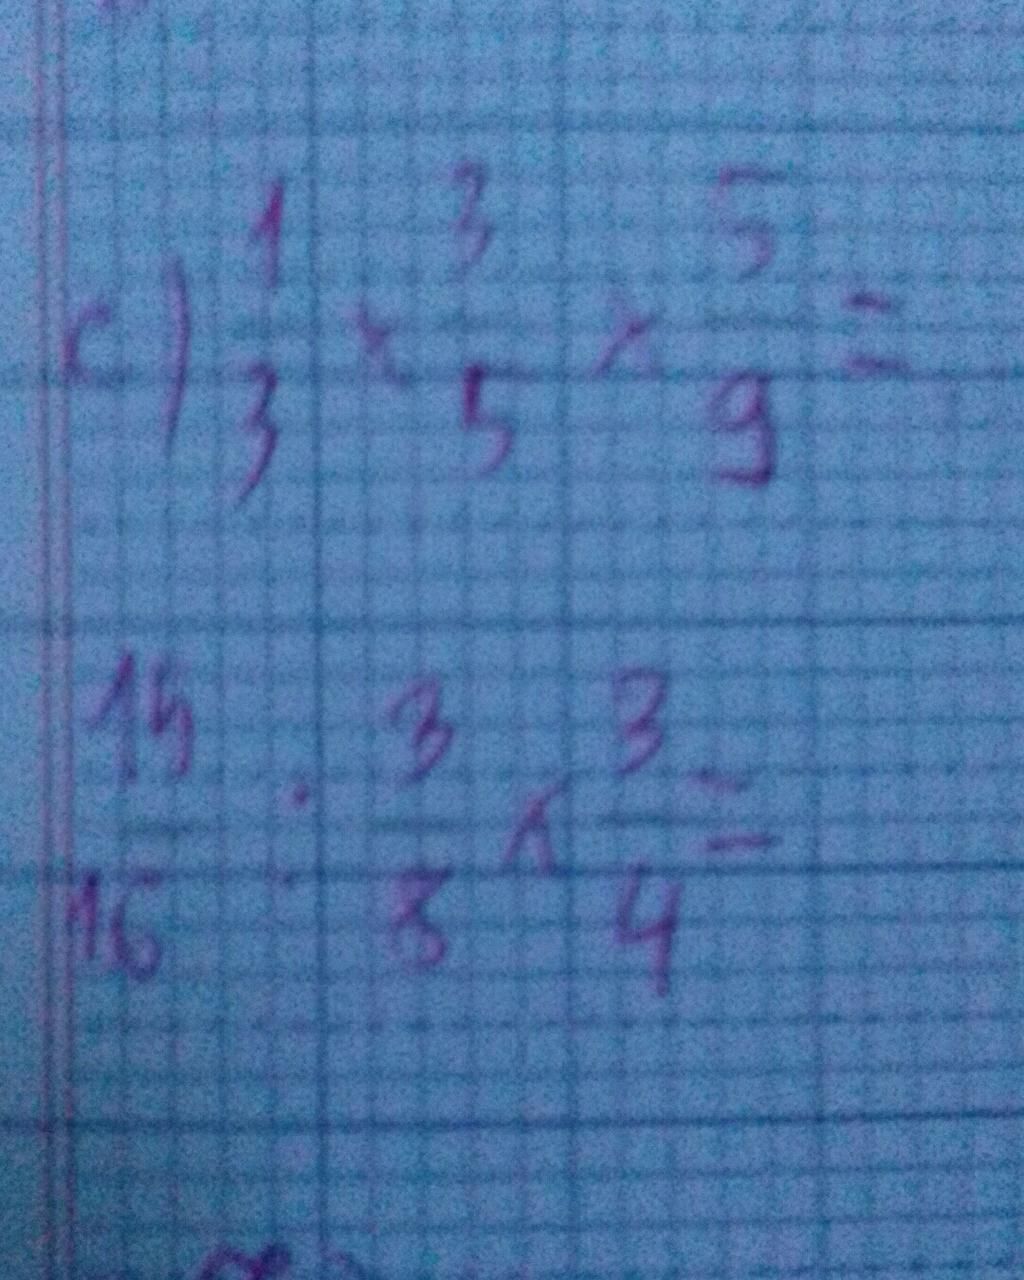 c) 1/3 × 3/5 × 5/9 =
15/16 : 3/8 × 3/4 =